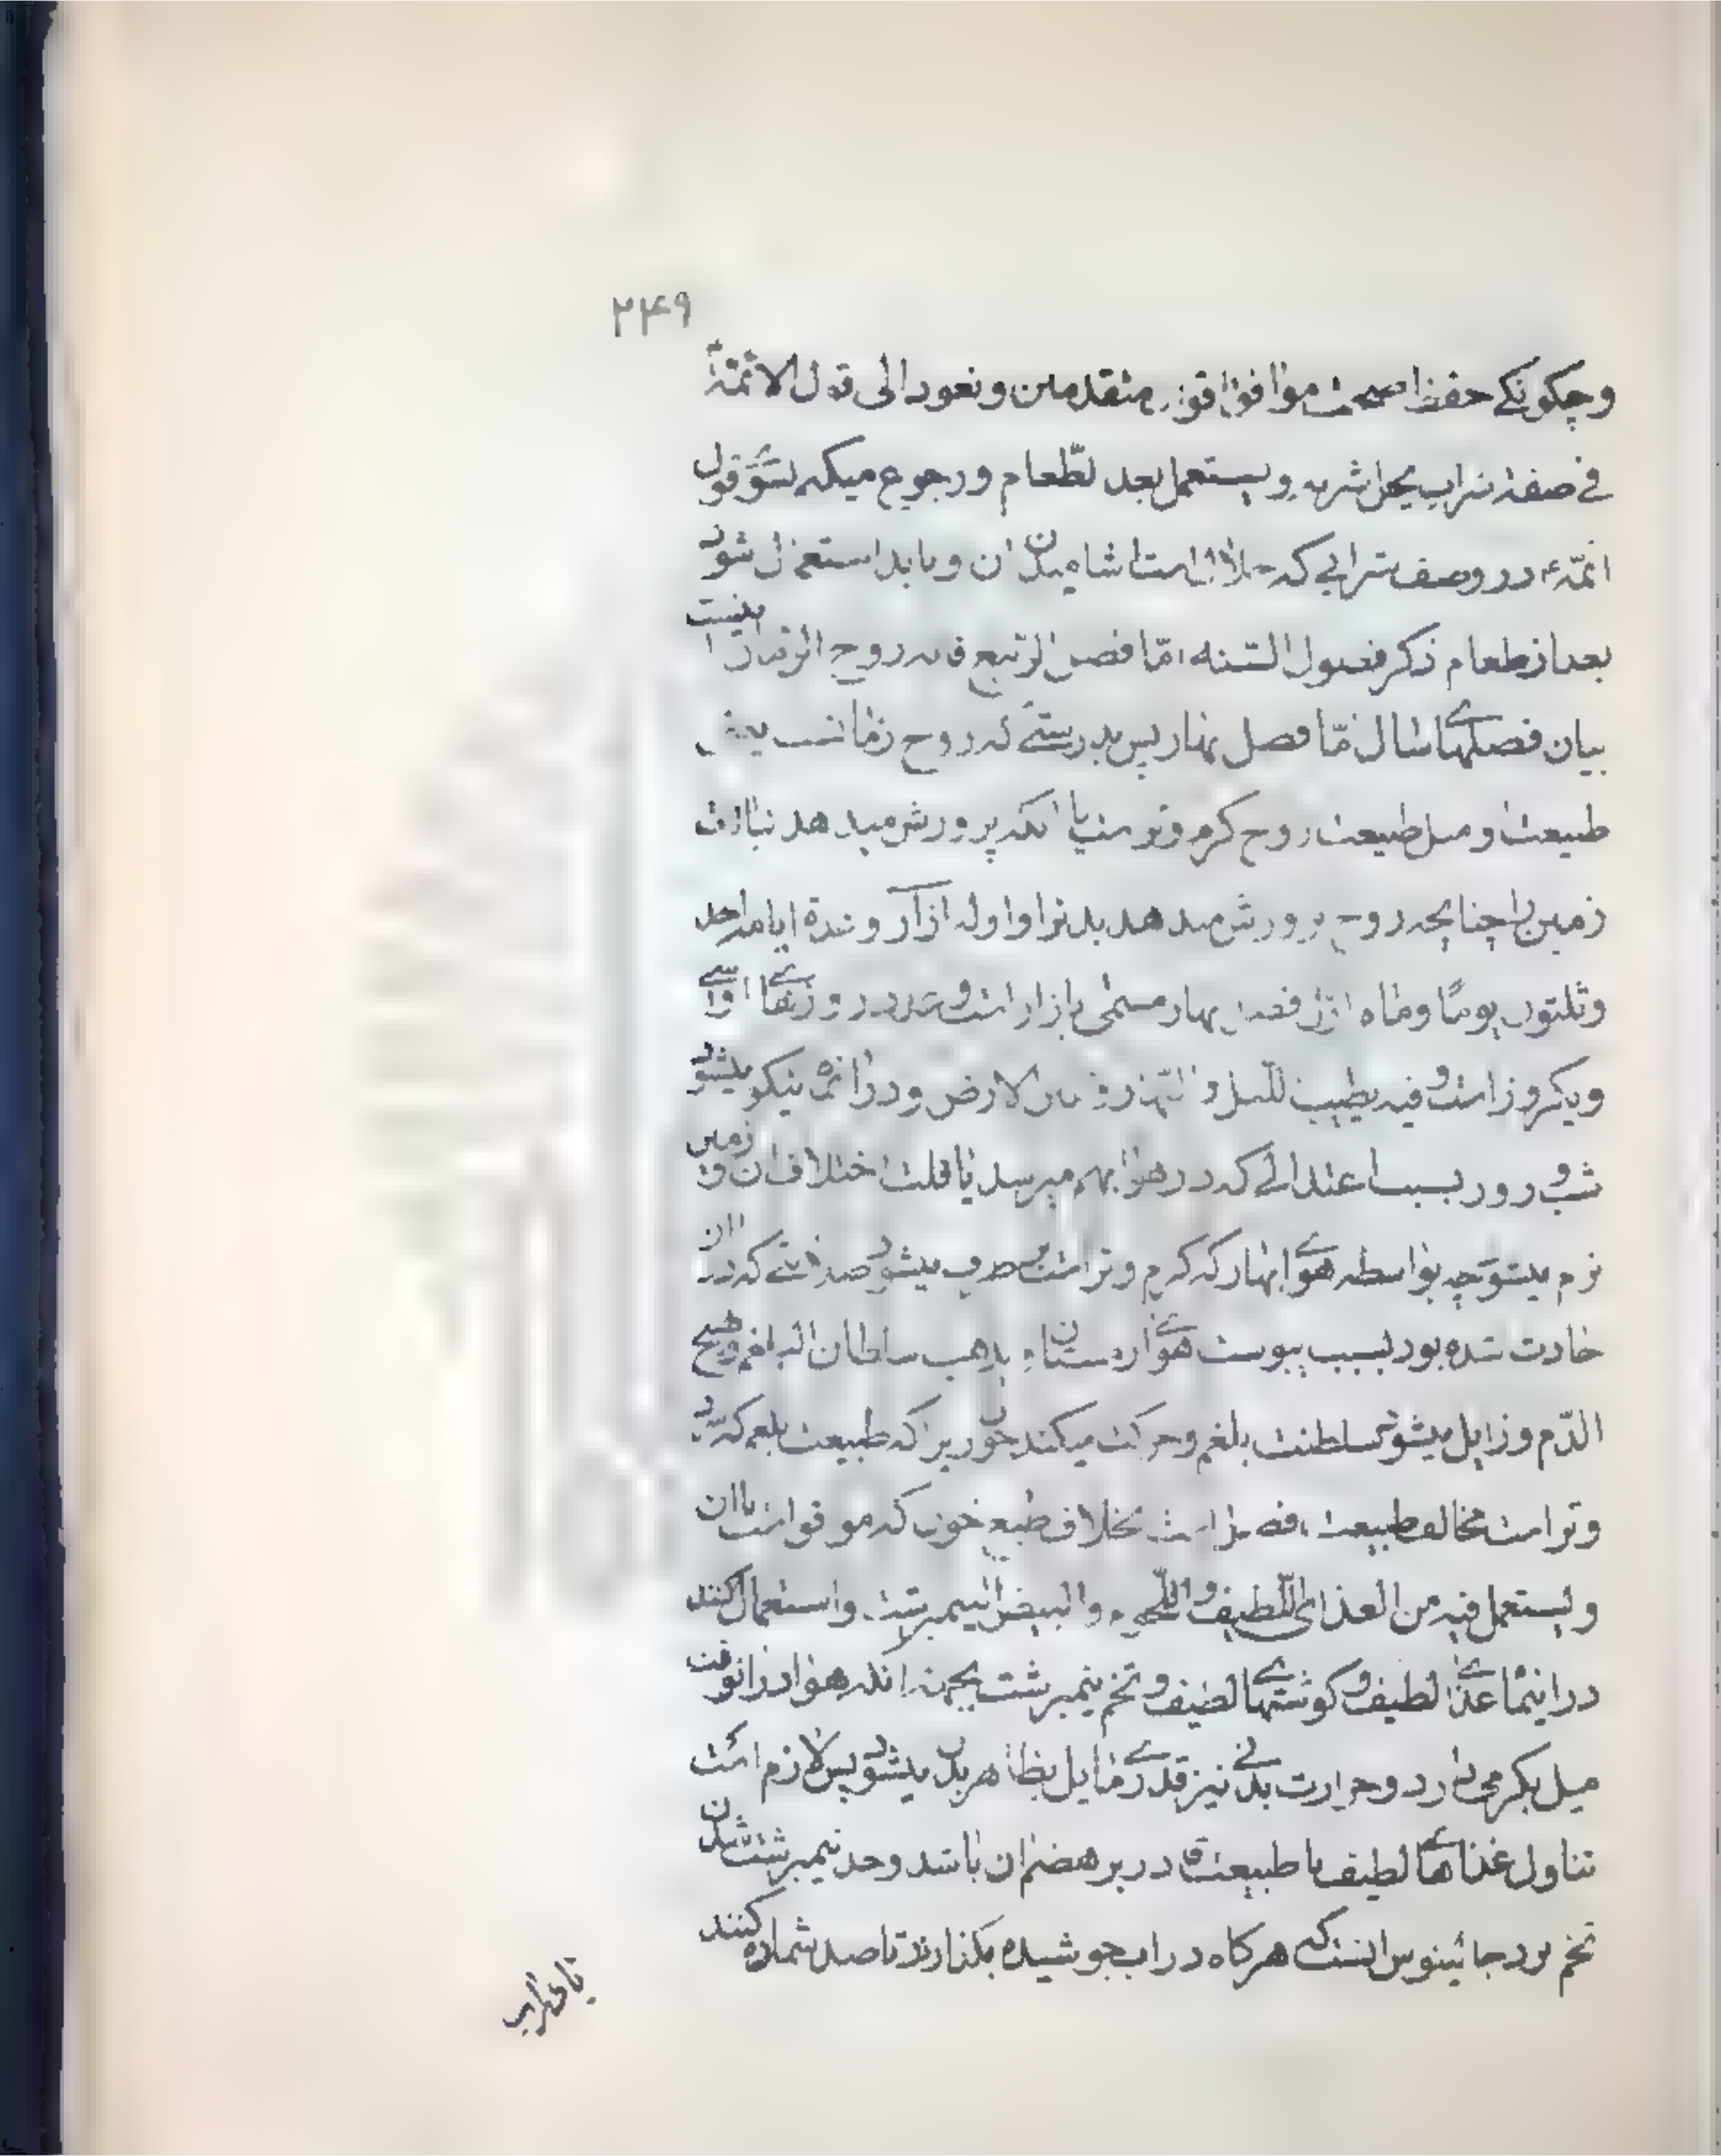 ۲۴۹
وچکونکے حفظ صحت موافق اقوال متقدمین ونعود الی قول الائمّة
فے صفة شراب یحل شربه ویستعمل بعد الطّعام ورجوع میکند بسوے قول
ائمّهء در وصف شرابے که حلال است اشامیدن ان وباید استعمال شود
بعد از طعام ذکر فصول السّنه امّا فصل الرّبیع فانه روح الزمان اینست
بیان فصلهاے سال امّا فصل بهار پس بدرستے که روح زمانست یعنے
طبیعت ومیل طبیعت روح کرم وتر است یا انکه پرورش میدهد نباتات
زمین را چنانچه روح پرورش میدهد بدنرا واوله اٰزار وعدة ایامه احد
وثلثون یوما وماه اوّل فصل بهار مسمّی باٰزار است وعدد روزهاے او سے
ویکروز است وفیه یطیب اللّیل والنّهار وتلین الارض ودر انماه نیکو میشود
شب وروز بسبب اعتدالے که در هوا بهم میرسد یا قلت اختلاف ان وزمین
نرم میشود چه بواسطه هواے بهار که کرم وتر است برطرف میشود صلابتے که در ان
حادث شده بود بسبب یبوست هواے زمستان ویذهب سلطان البلغم ویهیج
الدّم وزایل میشود سلطنت بلغم وحرکت میکند خون زیرا که طبیعت بلغم که سرد
وتر است مخالف طبیعت فصل است بخلاف طبع خون که موافق است با ان
ویستعمل فیه من الغذاء اللّطیف واللّحوم والبیض النّیمبرشت واستعمال کنند
در اینماه غذاے لطیف وکوشتهاے لطیف وتخم نیمبرشت بجهة انکه هوا در انوقت
میل بکرمی دارد وحرارت بدنے نیز قدرے مایل بظاهر بدن میشود پس لازم است
تناول غذاهاے لطیف تا طبیعت قادر بر هضم ان باشد وحد نیمبرشت شدن
تخم نزد جالینوس انست که هرکاه در اب جوشیده بکذارند تا صد شماره کنند